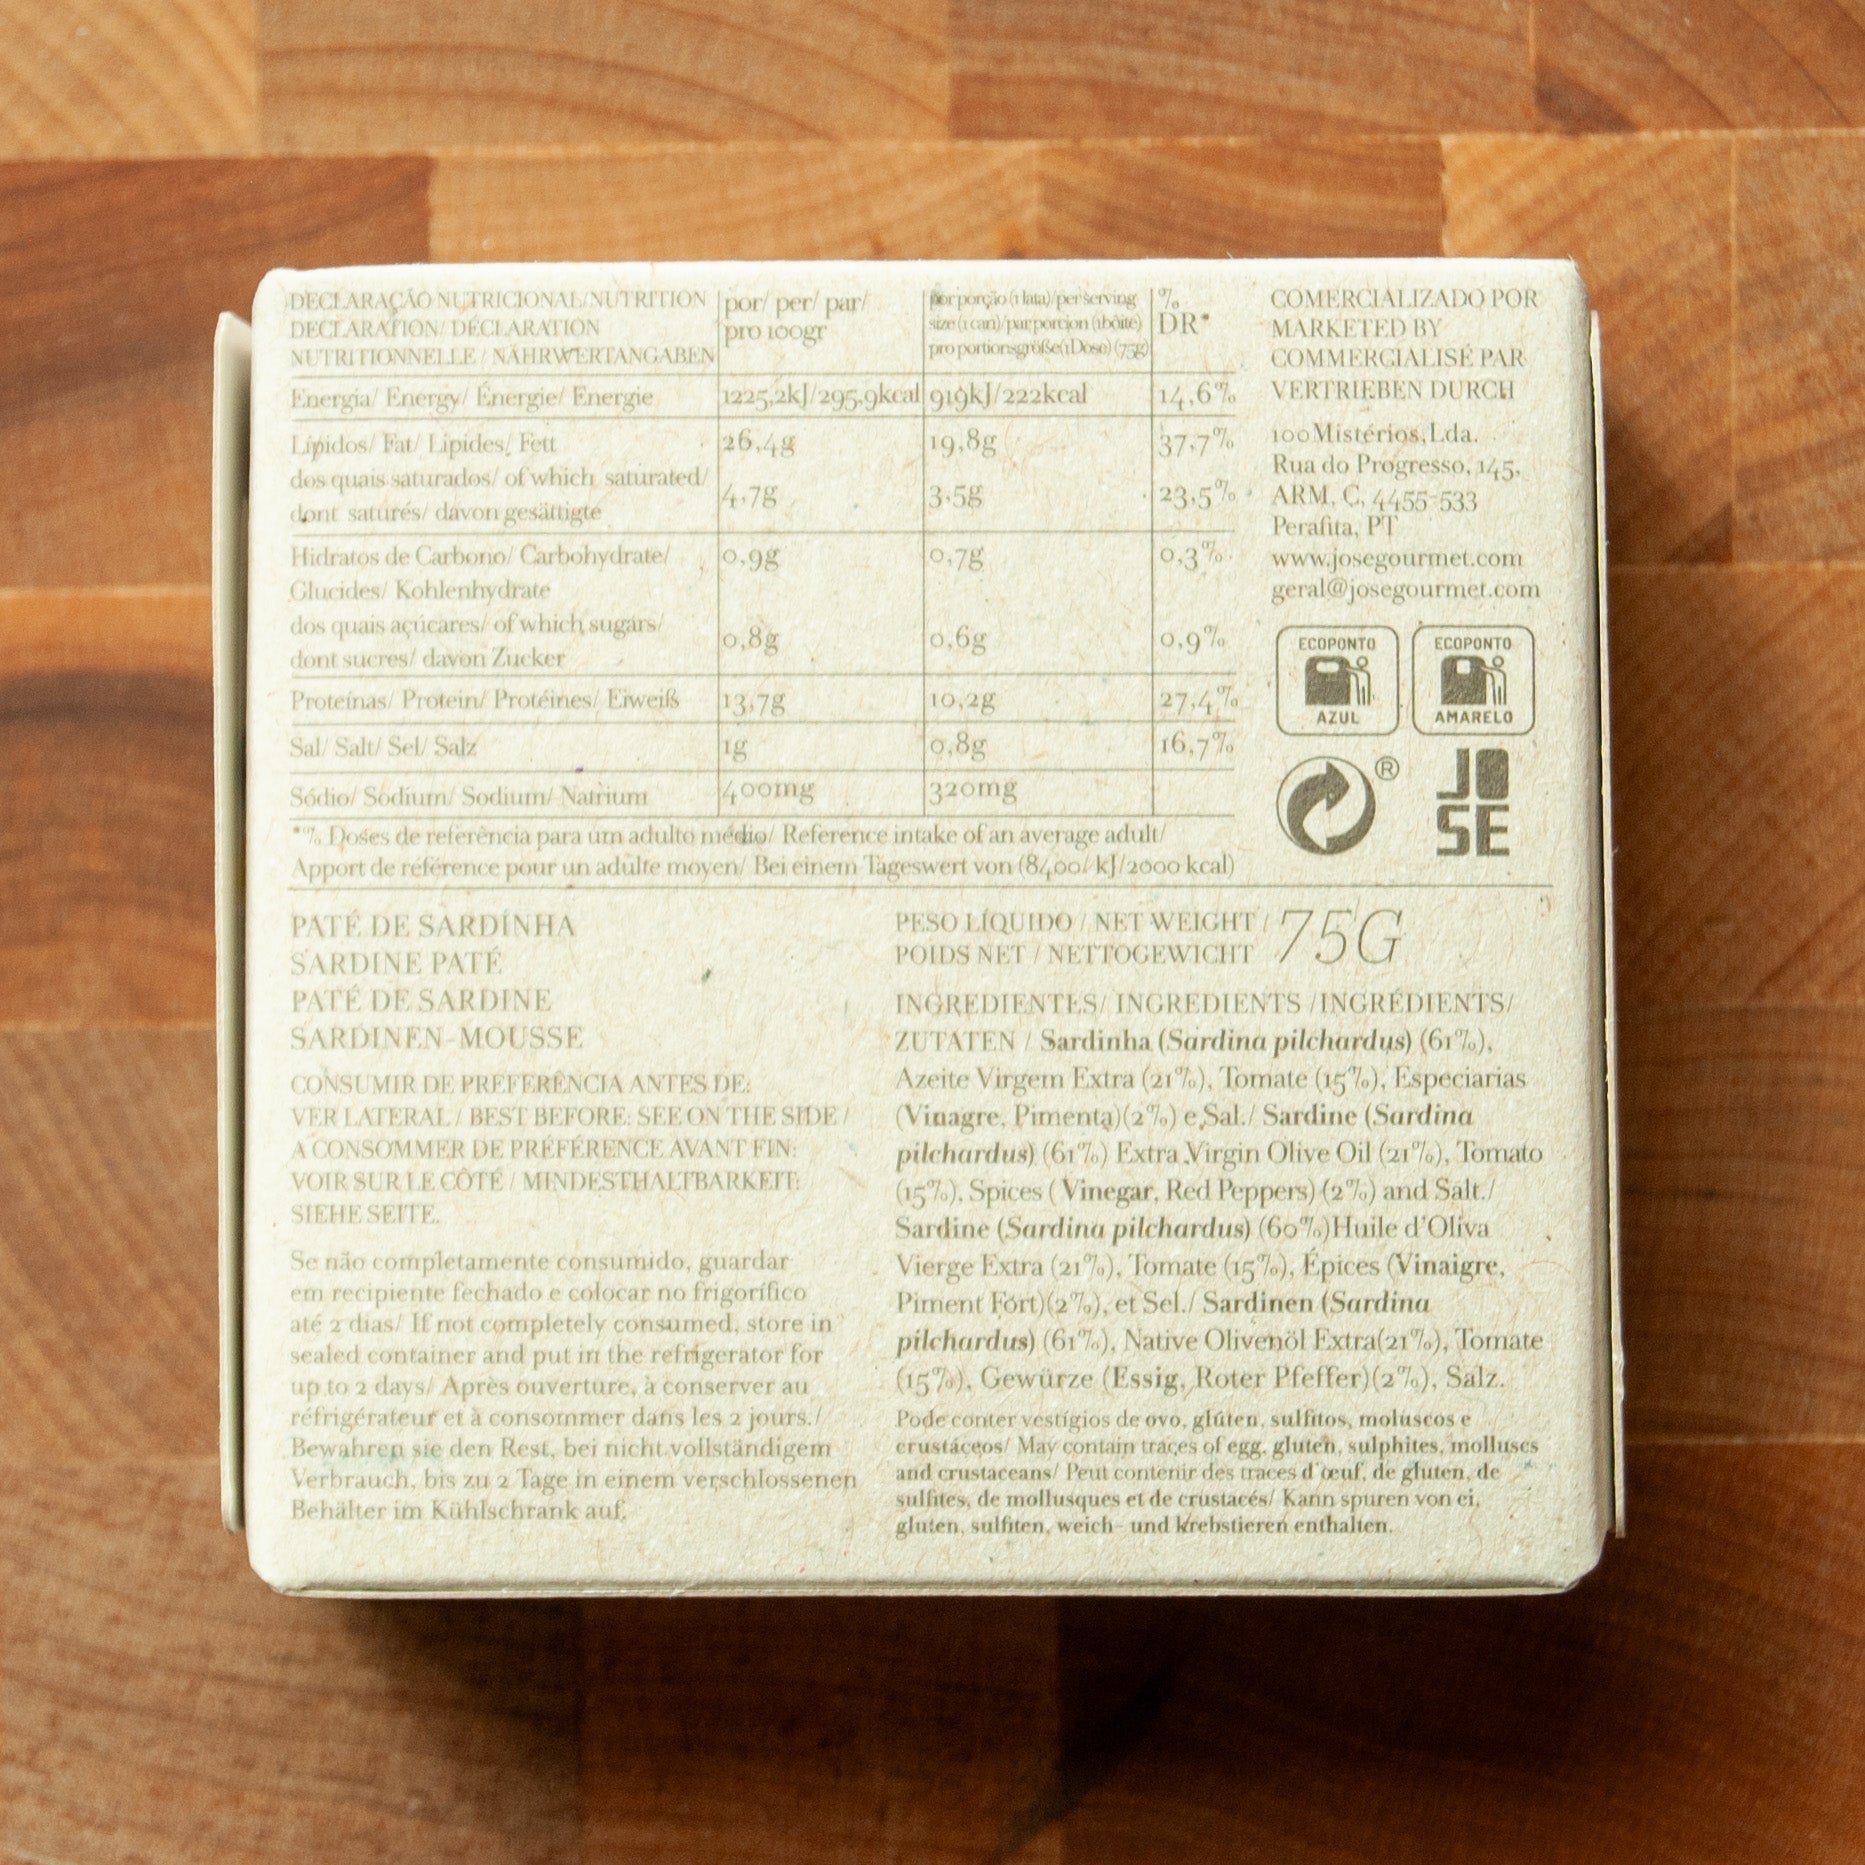 DECLARAÇÃO NUTRICIONAL/NUTRITION
DECLARATION/ DÉCLARATION
NUTRITIONNELLE / NÄHRWERTANGABEN
por/ per/ par/
pro 100gr
por porção (1 lata)/per serving
size (1 can)/par porcion (1boîte)
pro portionsgröße(1Dose) (75g)
%
DR*
Energia/ Energy/ Énergie/ Energie 1225,2kJ/295,9kcal 919kJ/222kcal 14,6%
Lípidos/ Fat/ Lipides/ Fett 26,4g 19,8g 37,7%
dos quais saturados/ of which saturated/
dont saturés/ davon gesättigte 4,7g 3,5g 23,5%
Hidratos de Carbono/ Carbohydrate/ 0,9g 0,7g 0,3%
Glucides/ Kohlenhydrate
dos quais açúcares/ of which sugars/
dont sucres/ davon Zucker 0,8g 0,6g 0,9%
Proteínas/ Protein/ Protéines/ Eiweiß 13,7g 10,2g 27,4%
Sal/ Salt/ Sel/ Salz 1g 0,8g 16,7%
Sódio/ Sodium/ Sodium/ Natrium 400mg 320mg
*% Doses de referência para um adulto médio/ Reference intake of an average adult/
Apport de référence pour un adulte moyen/ Bei einem Tageswert von (8400/ kJ/2000 kcal)
COMERCIALIZADO POR
MARKETED BY
COMMERCIALISÉ PAR
VERTRIEBEN DURCH
100Mistérios,Lda.
Rua do Progresso, 145,
ARM, C, 4455-533
Perafita, PT
www.josegourmet.com
geral@josegourmet.com
ECOPONTO
AZUL
ECOPONTO
AMARELO
®
JO
SE
PATÉ DE SARDINHA
SARDINE PATÉ
PATÉ DE SARDINE
SARDINEN-MOUSSE
CONSUMIR DE PREFERÊNCIA ANTES DE:
VER LATERAL / BEST BEFORE: SEE ON THE SIDE /
A CONSOMMER DE PRÉFÉRENCE AVANT FIN:
VOIR SUR LE CÔTÉ / MINDESTHALTBARKEIT:
SIEHE SEITE.
Se não completamente consumido, guardar
em recipiente fechado e colocar no frigorífico
até 2 dias/ If not completely consumed, store in
sealed container and put in the refrigerator for
up to 2 days/ Après ouverture, à conserver au
réfrigérateur et à consommer dans les 2 jours./
Bewahren sie den Rest, bei nicht vollständigem
Verbrauch, bis zu 2 Tage in einem verschlossenen
Behälter im Kühlschrank auf.
PESO LÍQUIDO / NET WEIGHT /
POIDS NET / NETTOGEWICHT 75G
INGREDIENTES/ INGREDIENTS /INGRÉDIENTS/
ZUTATEN / Sardinha (Sardina pilchardus) (61%),
Azeite Virgem Extra (21%), Tomate (15%), Especiarias
(Vinagre, Pimenta)(2%) e Sal./ Sardine (Sardina
pilchardus) (61%) Extra Virgin Olive Oil (21%), Tomato
(15%), Spices ( Vinegar, Red Peppers) (2%) and Salt./
Sardine (Sardina pilchardus) (60%)Huile d'Oliva
Vierge Extra (21%), Tomate (15%), Épices (Vinaigre,
Piment Fort)(2%), et Sel./ Sardinen (Sardina
pilchardus) (61%), Native Olivenöl Extra(21%), Tomate
(15%), Gewürze (Essig, Roter Pfeffer)(2%), Salz.
Pode conter vestígios de ovo, glúten, sulfitos, moluscos e
crustáceos/ May contain traces of egg, gluten, sulphites, molluscs
and crustaceans/ Peut contenir des traces d'œuf, de gluten, de
sulfites, de mollusques et de crustacés/ Kann spuren von ei,
gluten, sulfiten, weich- und krebstieren enthalten.